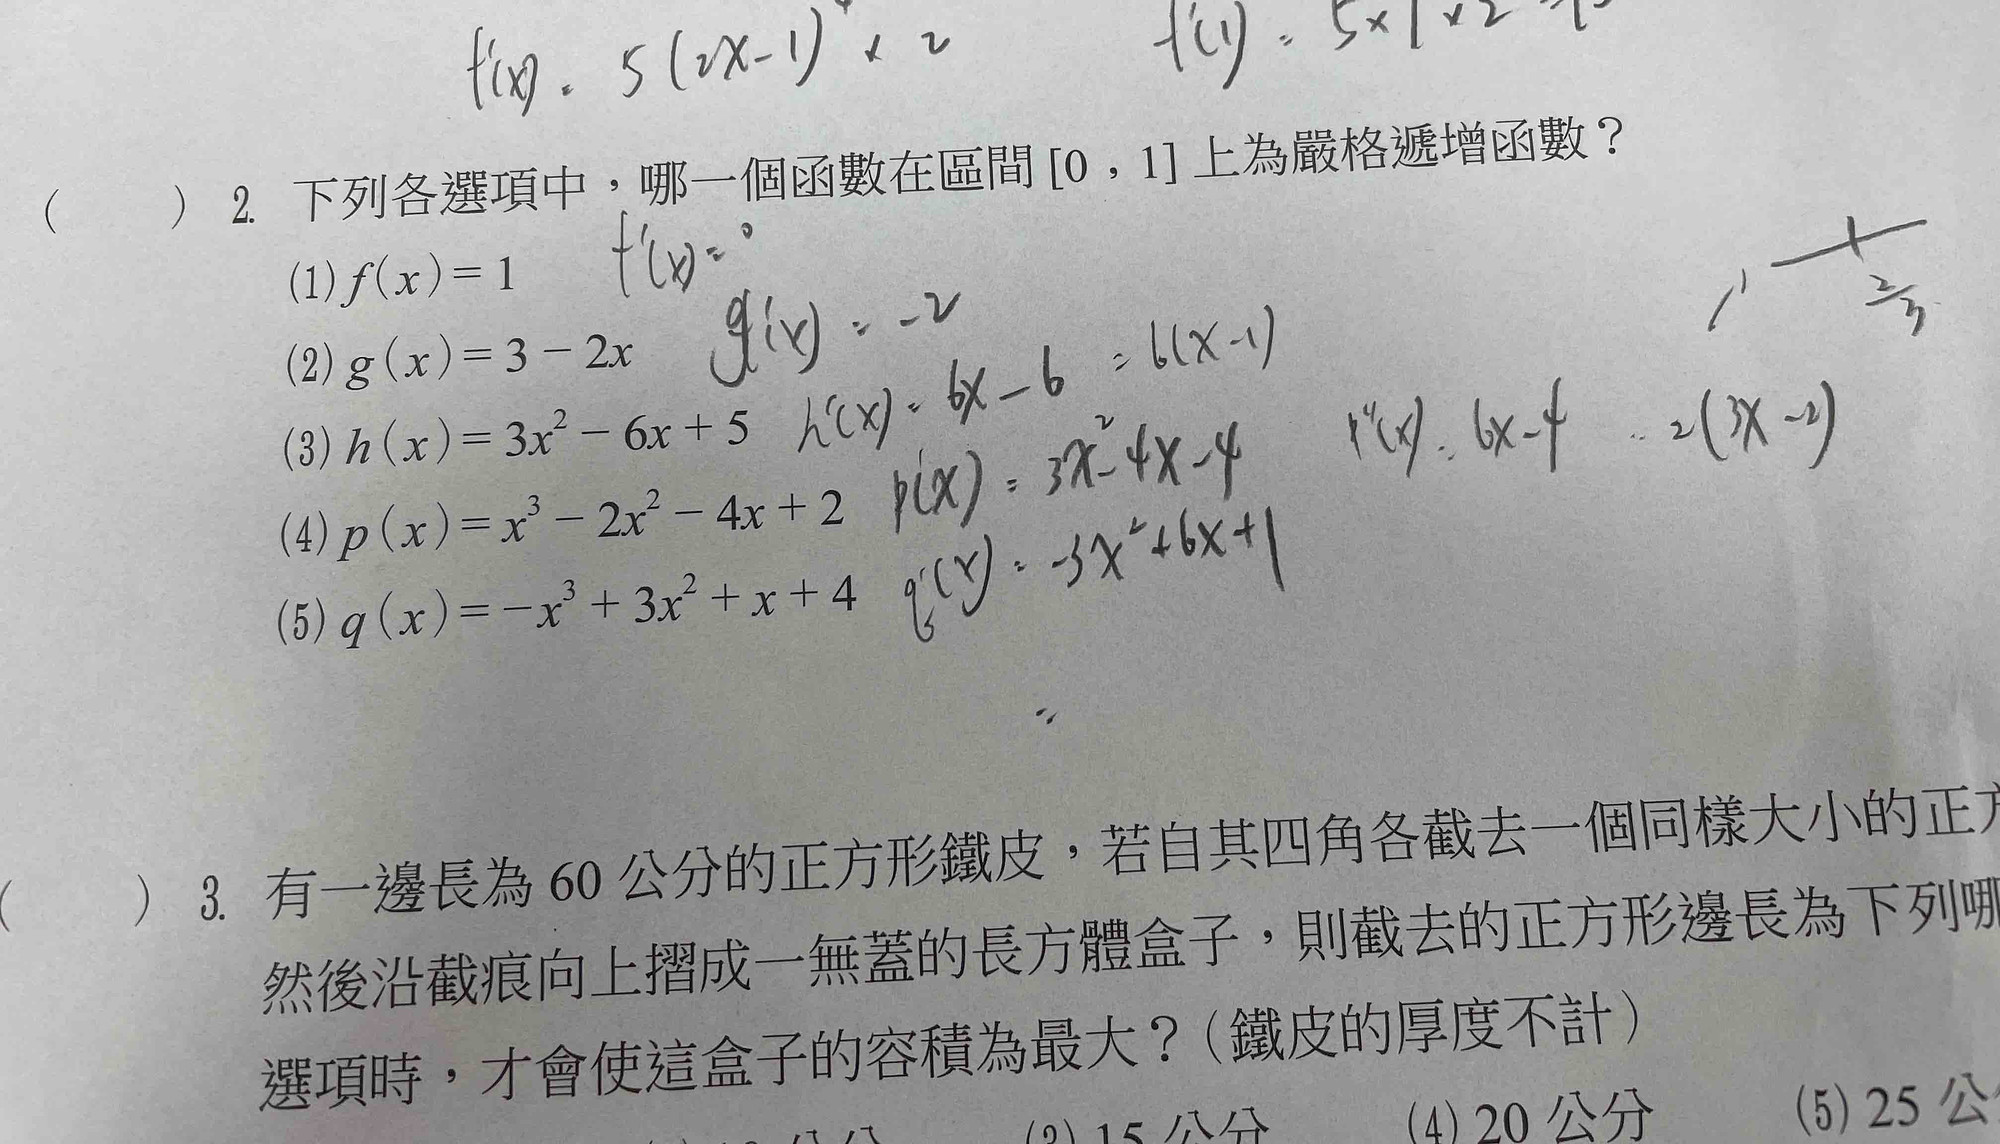 f'(x) = 5(2x-1)⁴ × 2  f'(1) = 5×1×2
( ) 2. 下列各選項中，哪一個函數在區間 [0，1] 上為嚴格遞增函數？
(1) f(x) = 1  f'(x) = 0
(2) g(x) = 3 − 2x  g'(x) = -2
(3) h(x) = 3x² − 6x + 5  h'(x) = 6x - 6 = 6(x-1)
(4) p(x) = x³ − 2x² − 4x + 2  p'(x) = 3x² - 4x - 4  p''(x) = 6x - 4 = 2(3x-2)
2/3
(5) q(x) = −x³ + 3x² + x + 4  q'(x) = -3x² + 6x + 1
( ) 3. 有一邊長為 60 公分的正方形鐵皮，若自其四角各截去一個同樣大小的正方
然後沿截痕向上摺成一無蓋的長方體盒子，則截去的正方形邊長為下列哪
選項時，才會使這盒子的容積為最大？（鐵皮的厚度不計）
(3) 15 公分  (4) 20 公分  (5) 25 公